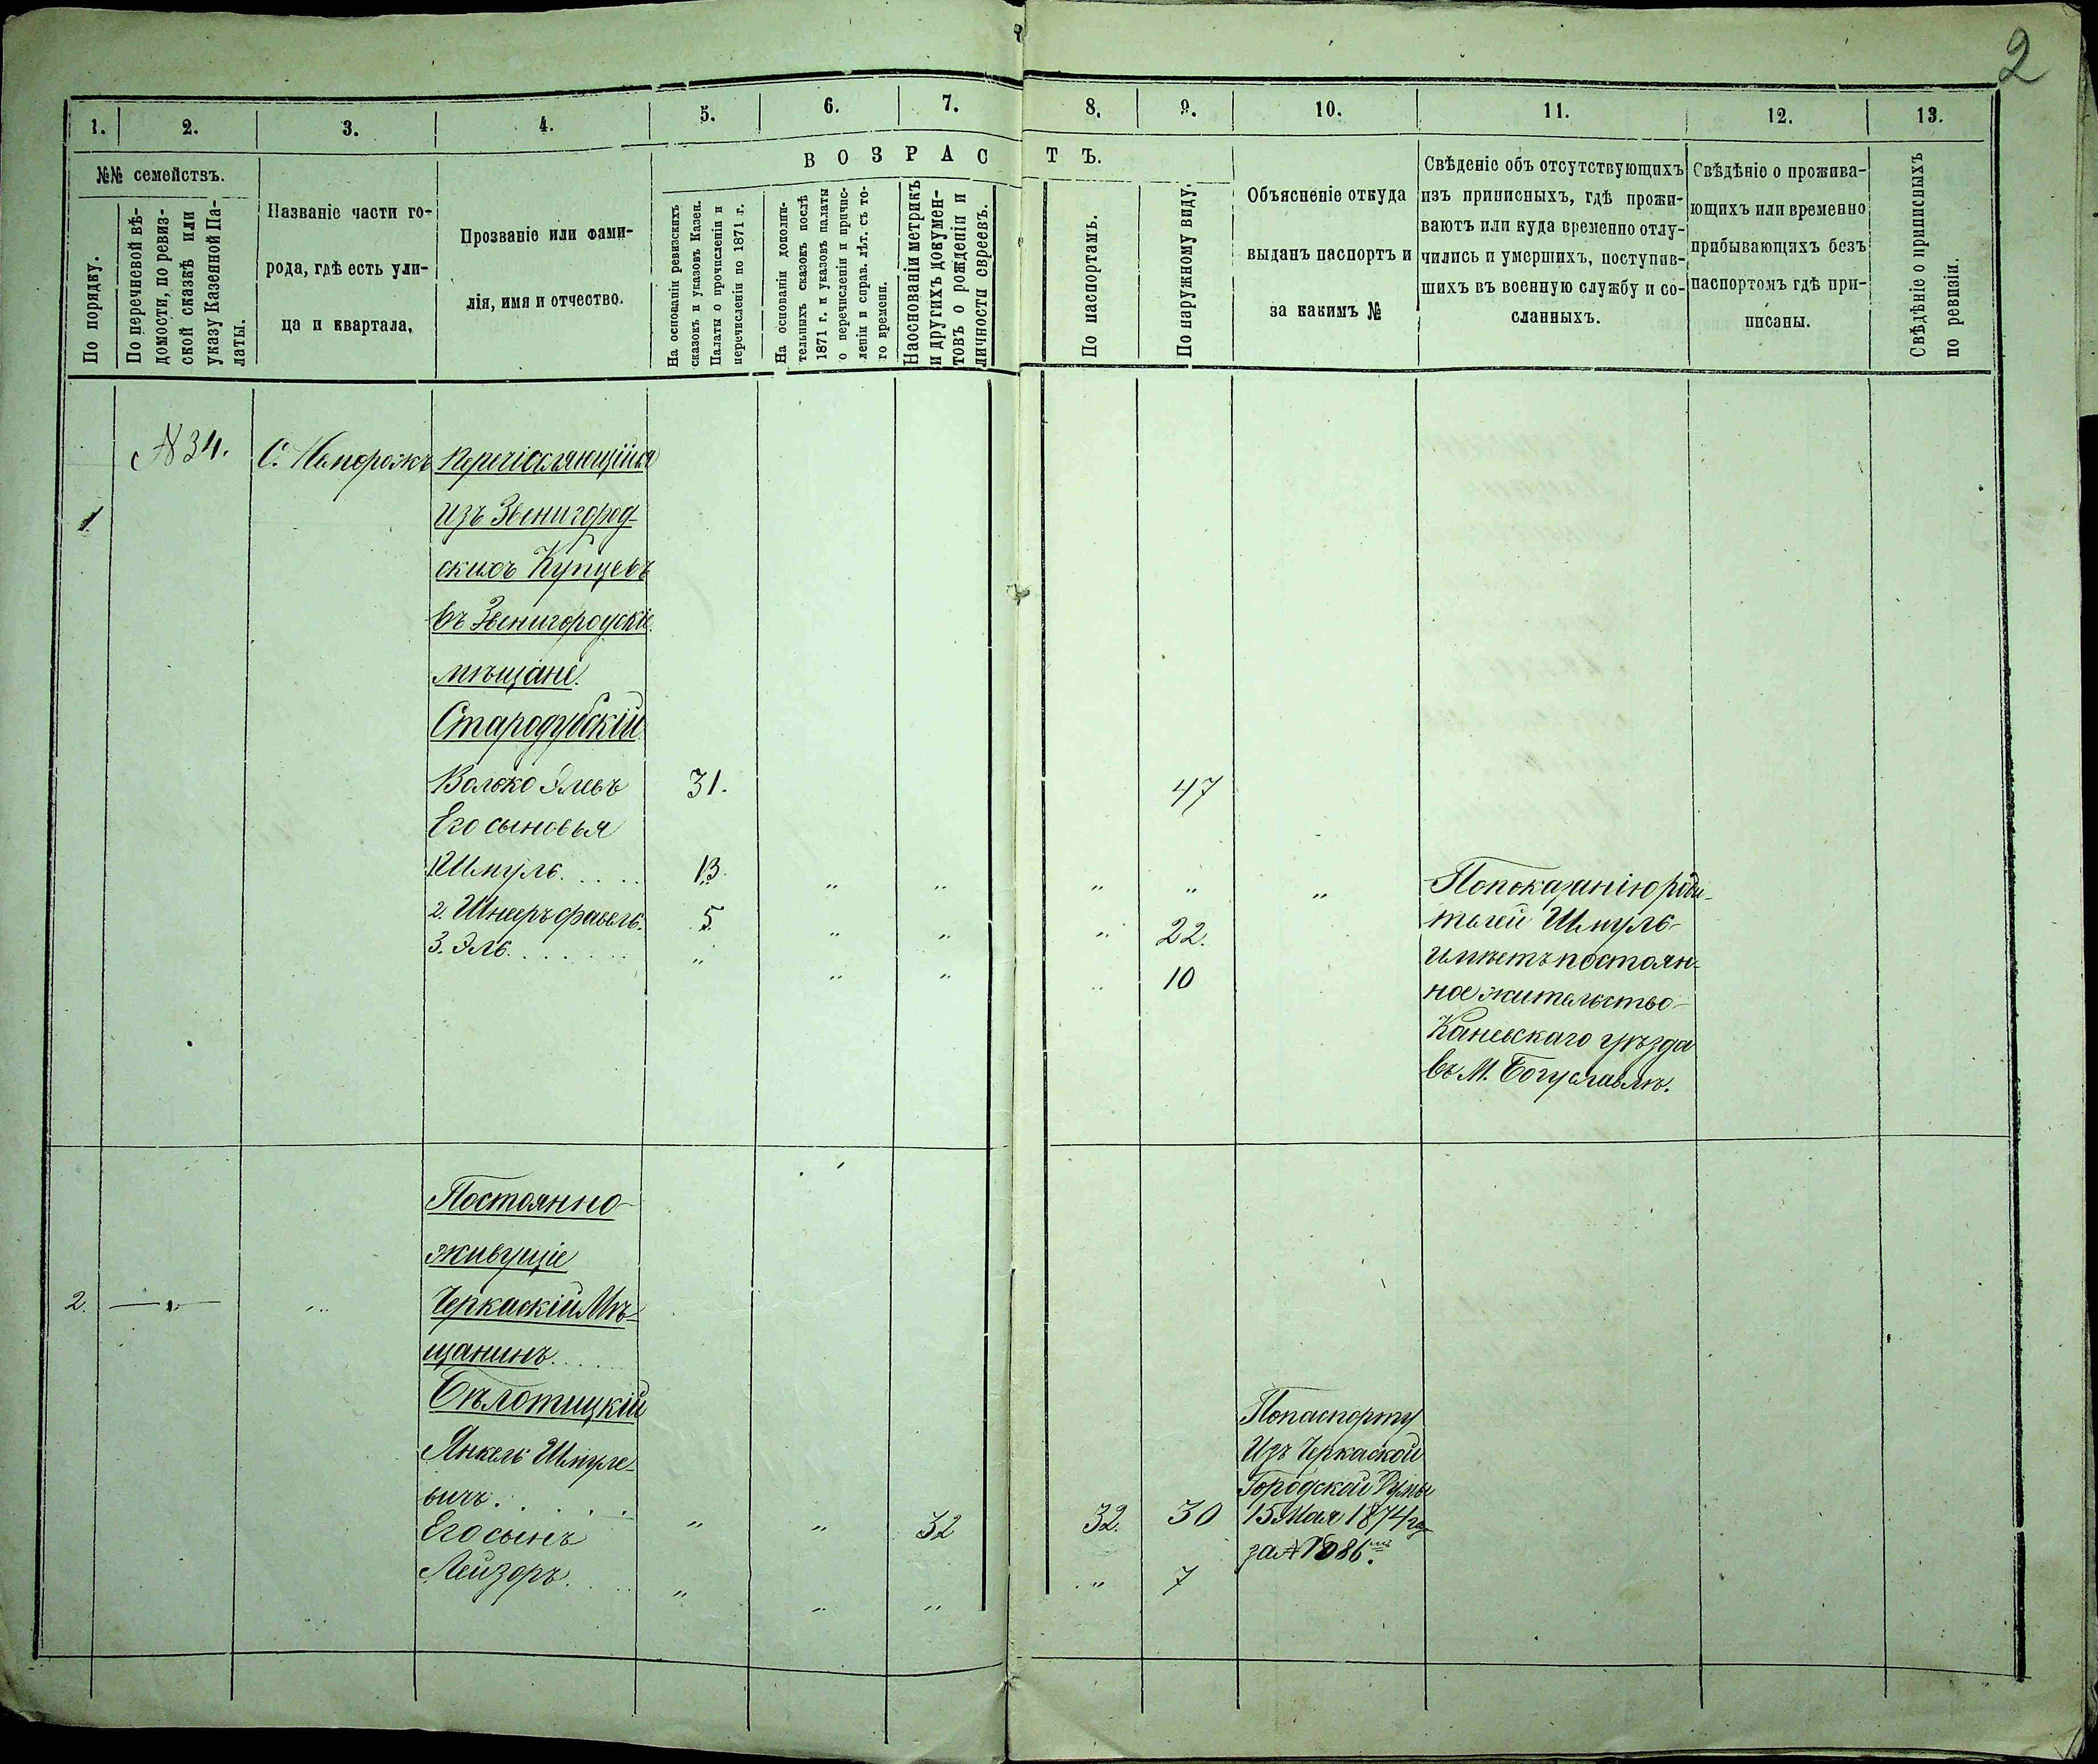 2
1.
2.
3.
4.
5.
6.
7.
8.
9.
10.
11.
12.
13.
№№ семействъ.
По порядку.
По перечневой вѣ-
домости, по ревиз-
ской сказкѣ или
указу Казенной Па-
латы.
Названіе части го-
рода, гдѣ есть ули-
ца и квартала,
Прозваніе или фами-
лія, имя и отчество.
ВОЗРАСТЪ.
На основаніи ревизскихъ
сказокъ и указовъ Казен.
Палаты о прочисленіи и
перечисленіи по 1871 г.
На основаніи дополни-
тельныхъ сказокъ послѣ
1871 г. и указовъ палаты
о перечисленіи и причис-
леніи и справ. лѣт. съ то-
го времени.
Наоснованіи метрикъ
и другихъ докумен-
товъ о рожденіи и
личности евреевъ.
По паспортамъ.
По наружному виду.
Объясненіе откуда
выданъ паспортъ и
за какимъ №
Свѣденіе объ отсутствующихъ
изъ приписныхъ, гдѣ прожи-
ваютъ или куда временно отлу-
чились и умершихъ, поступив-
шихъ въ военную службу и со-
сланныхъ.
Свѣдѣніе о прожива-
ющихъ или временно
прибывающихъ безъ
паспортомъ гдѣ при-
писаны.
Свѣдѣніе о приписныхъ
по ревизіи.
1
№ 34.
С.
Перечисляющійся
изъ Звенигород-
скихъ Купцевъ
въ Звенигородскіе
мѣщане.
Стародубскій
Волько 31. 47
Его сыновья
1 Шмуль. . . . . 13. " " " " "
2. 5. " " " 22.
3. Эль. . . . . . . " " " " 10
По показанію роди-
телей Шмуль
имѣетъ постоян-
ное жительство
Каневскаго уѣзда
въ М. Богуславлѣ.
Постоянно
живущіе
2. — " — " Черкаскій Мѣ-
щанинъ. . . .
Бѣлотицкій
Янкель Шмуле-
вичъ. . . . . . " " 32 32. 30
Его сынъ
Лейзоръ. . . . " " " " 7
По паспорту
Изъ Черкаской
Городской Думы
15 Мая 1874 г
за № 1086